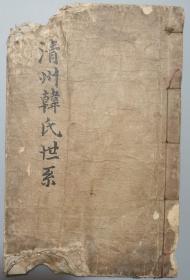 清州韓氏世系